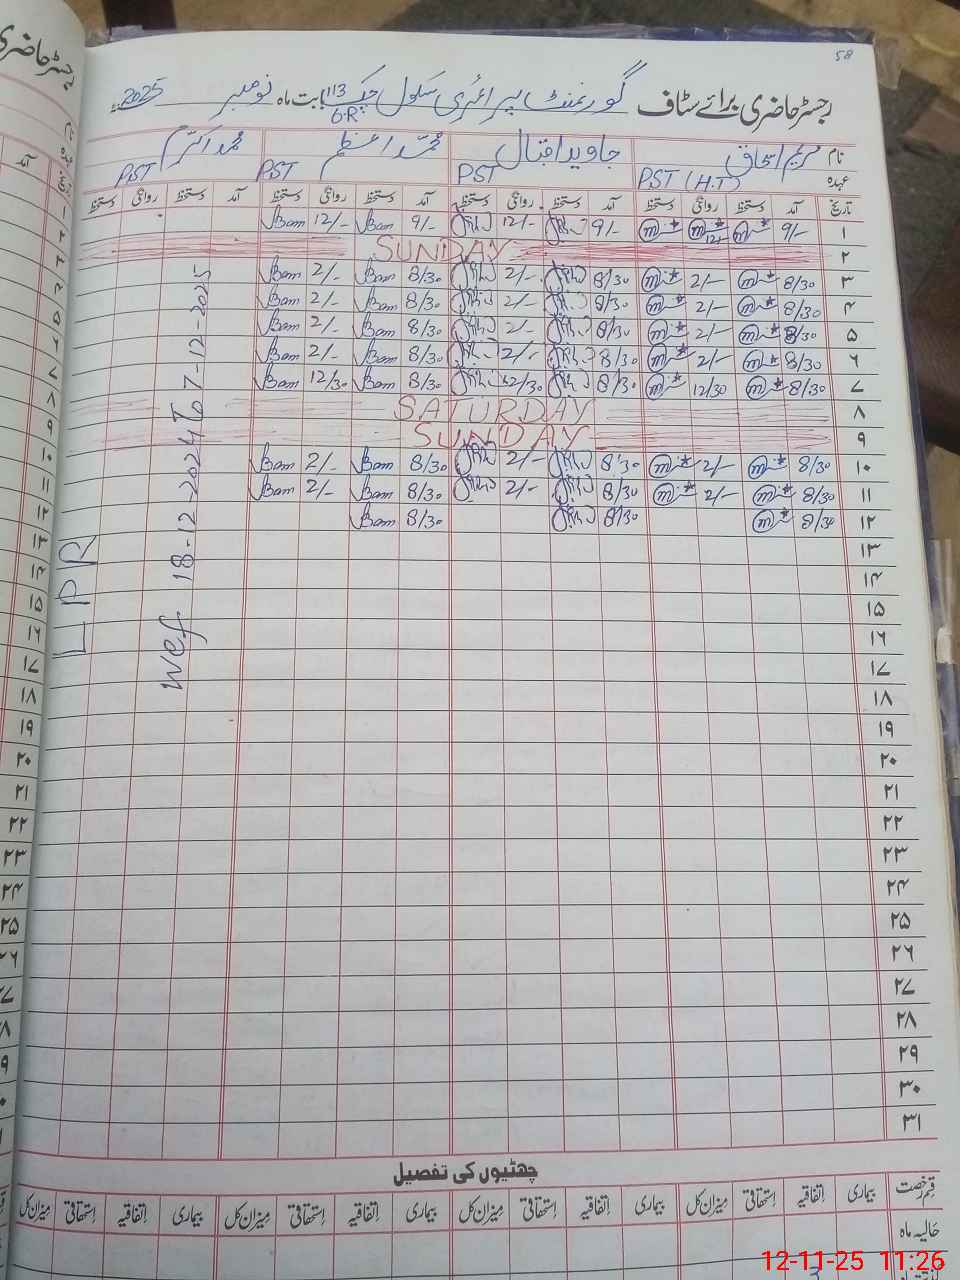 58
رجسٹر حاضری برائے سٹاف گورنمنٹ پرائمری سکول چک 113 6-R بابت ماہ نومبر 2025ء
نام مریم اسحاق جاوید اقبال محمد اعظم محمد اکرم
عہدہ PST (H.T) PST PST PST
تاریخ آمد دستخط روانگی دستخط آمد دستخط روانگی دستخط آمد دستخط روانگی دستخط آمد دستخط روانگی دستخط
۱ 9/- 12/- 9/- 12/- 9/- Bam 12/- Bam
۲ SUNDAY
۳ 8/30 2/- 8/30 2/- 8/30 Bam 2/- Bam
۴ 8/30 2/- 8/30 2/- 8/30 Bam 2/- Bam
۵ 8/30 2/- 8/30 2/- 8/30 Bam 2/- Bam
۶ 8/30 2/- 8/30 2/- 8/30 Bam 2/- Bam
۷ 8/30 12/30 8/30 12/30 8/30 Bam 12/30 Bam
۸ SATURDAY
۹ SUNDAY
۱۰ 8/30 2/- 8/30 2/- 8/30 Bam 2/- Bam
۱۱ 8/30 2/- 8/30 2/- 8/30 Bam 2/- Bam
۱۲ 8/30 8/30 8/30 Bam
۱۳
۱۴
۱۵
۱۶
۱۷
۱۸
۱۹
۲۰
۲۱
۲۲
۲۳
۲۴
۲۵
۲۶
۲۷
۲۸
۲۹
۳۰
۳۱
LPR
wef 18-12-2024 To 07-12-2025
چھٹیوں کی تفصیل
قسم رخصت بیماری اتفاقیہ استحقاقی میزان کل بیماری اتفاقیہ استحقاقی میزان کل بیماری اتفاقیہ استحقاقی میزان کل بیماری اتفاقیہ استحقاقی میزان کل
حالیہ ماہ
12-11-25 11:26